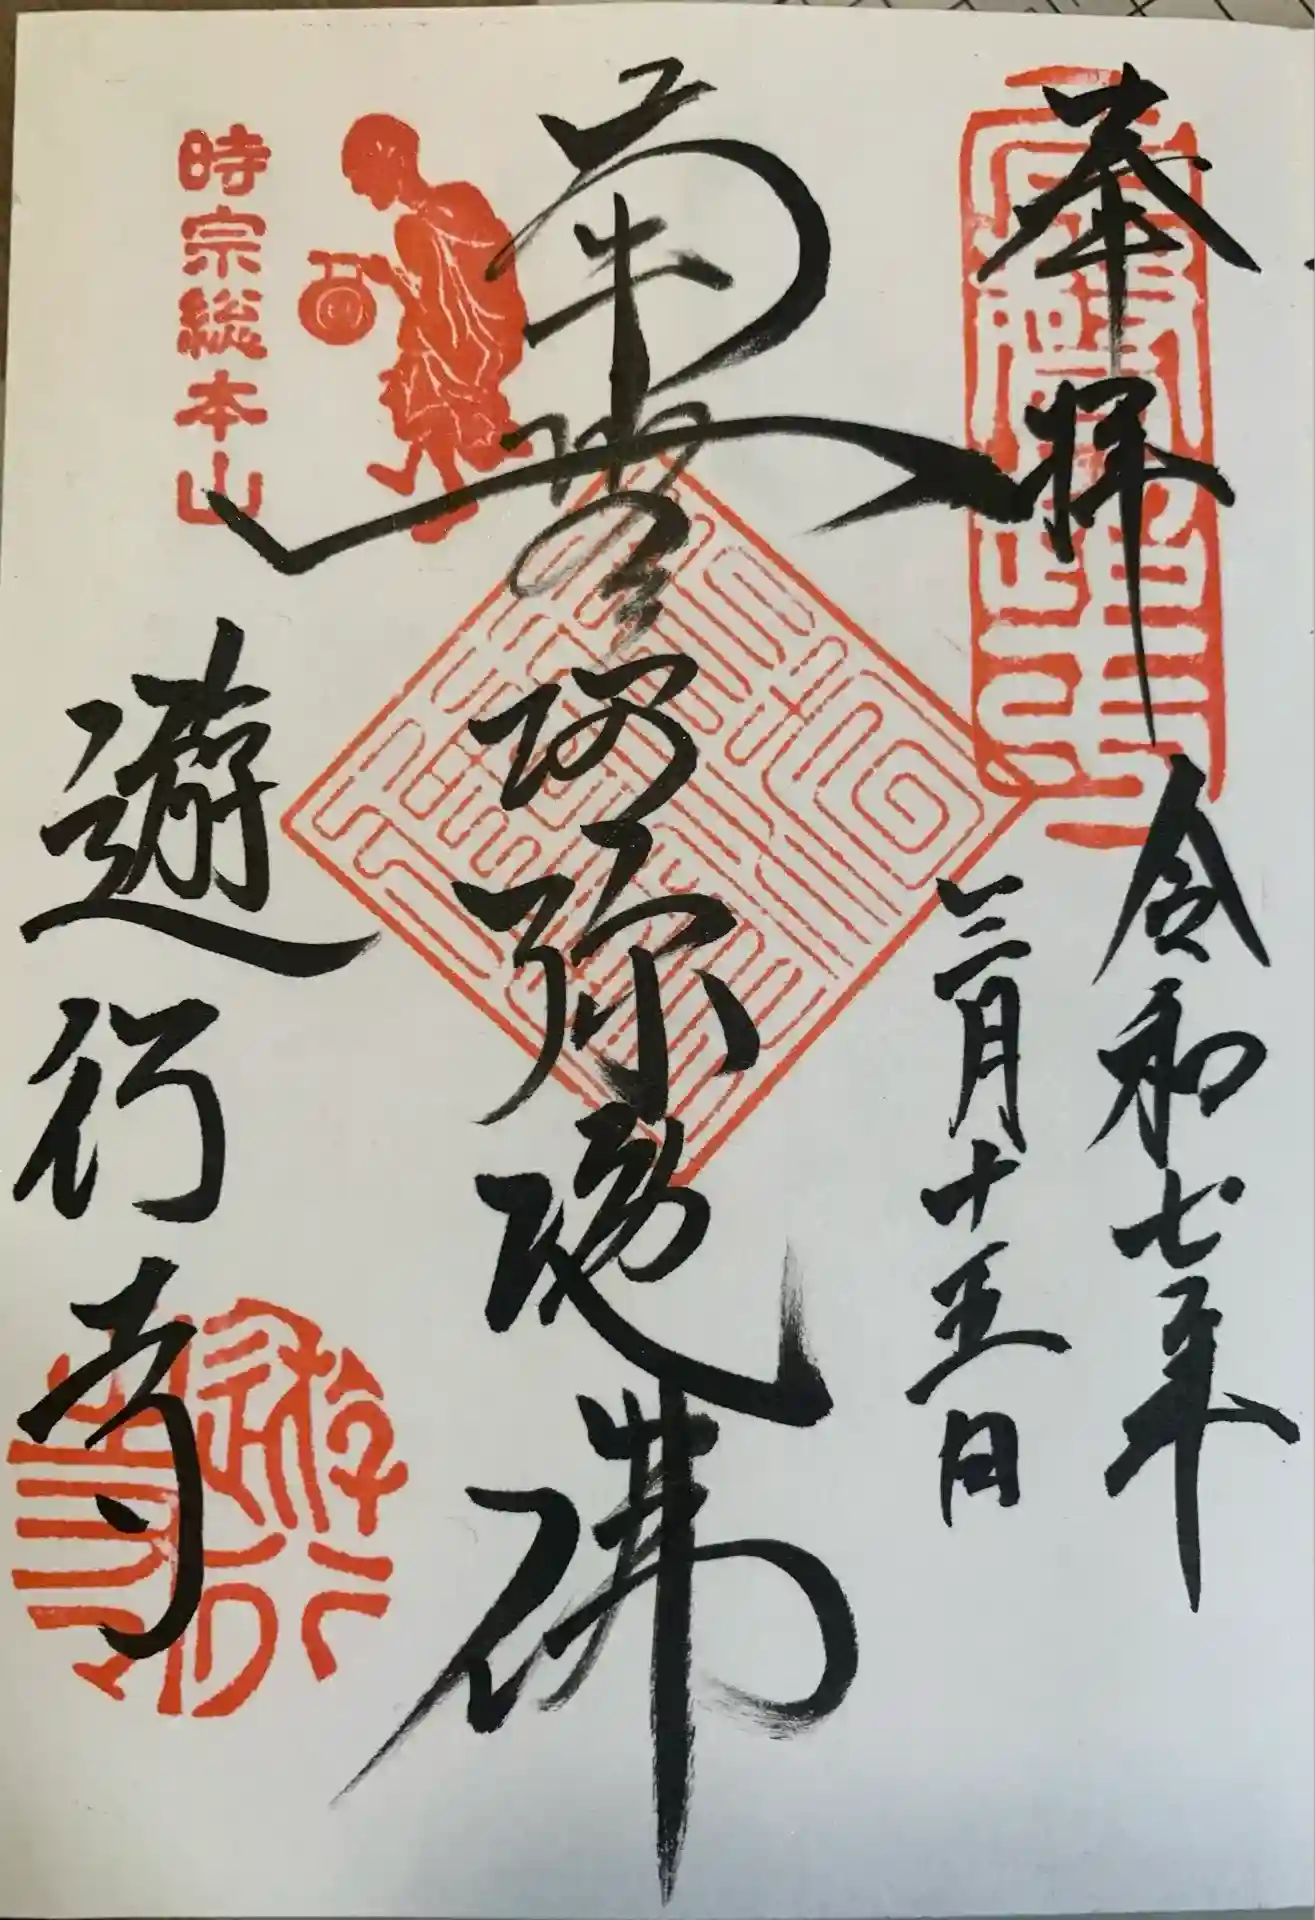 奉拝
令和七年
三月十五日
南無阿弥陀佛
時宗総本山
遊行寺
遊行寺印